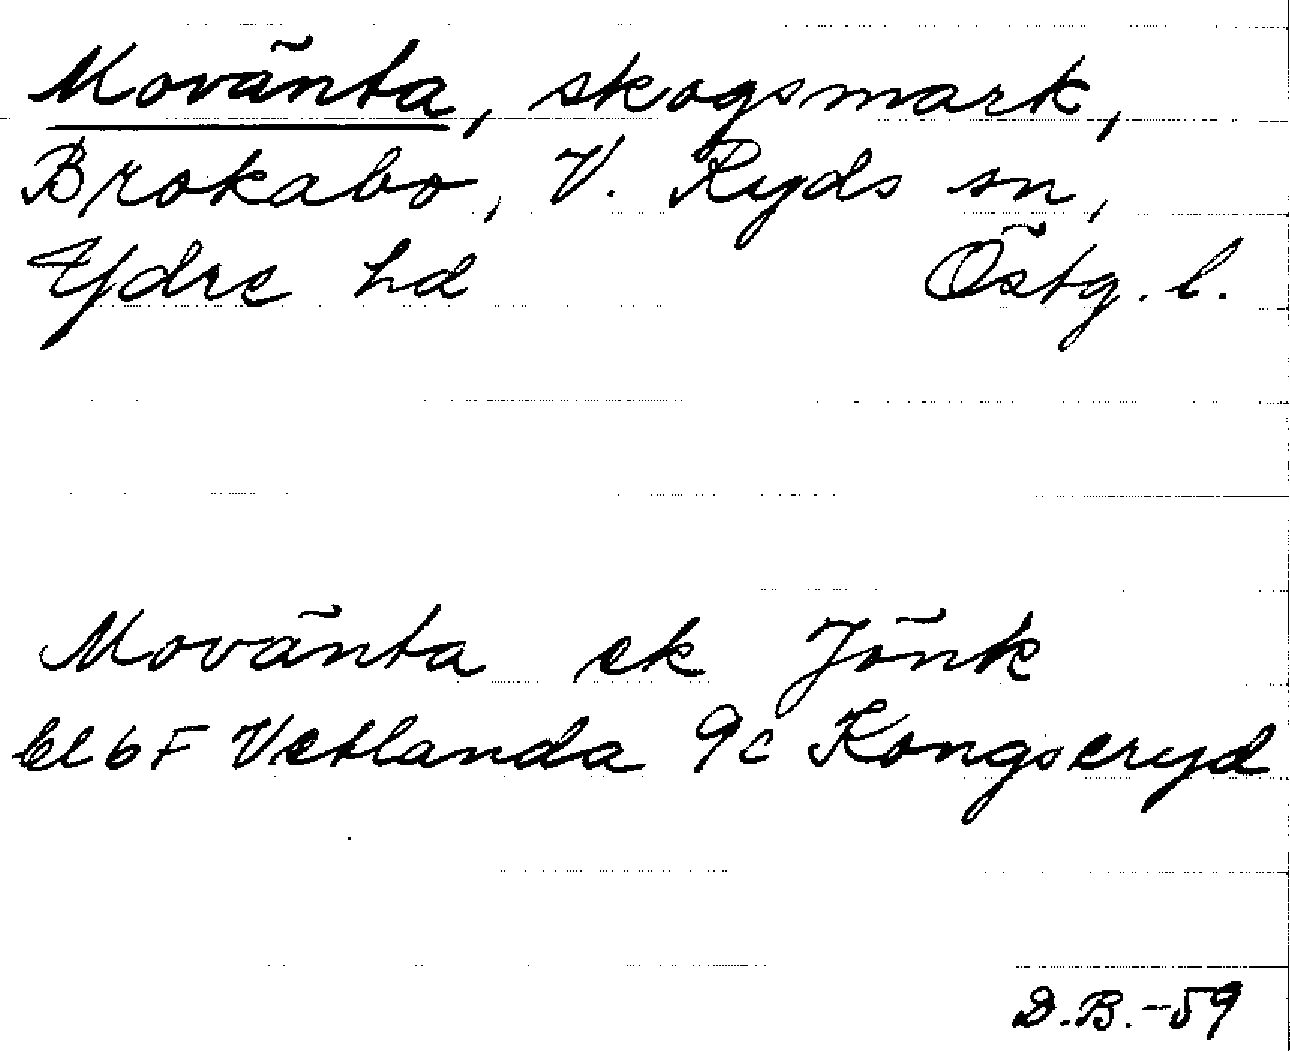 Movänta, skogsmark,
Brokabo, V. Ryds sn,
Ydre hd Östg. l.
Movänta ek Jönk
bl 6F Vetlanda 9c Kongseryd
D.B.-59